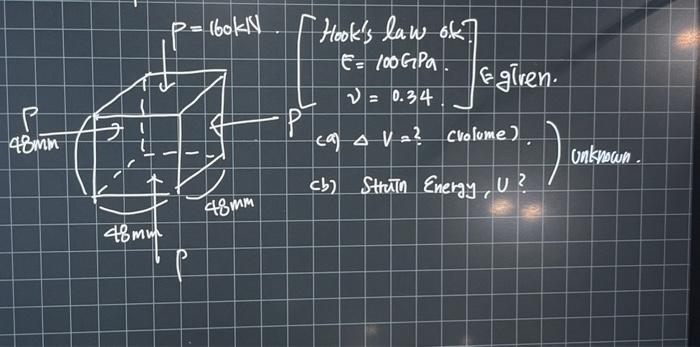 P = 160kN.
P
48mm
P
48mm
48mm
P
Hook's law ok?
E = 100GPa.
ν = 0.34.
given.
(a) Δ V = ? (volume).
(b) Strain Energy, U ?
unknown.